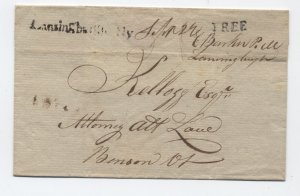 Lansingburgh Ny Sept 22 FREE
E Barker P.M
Lansingburgh
Kellogg Esqr.
Attorney att Law
Benson Vt